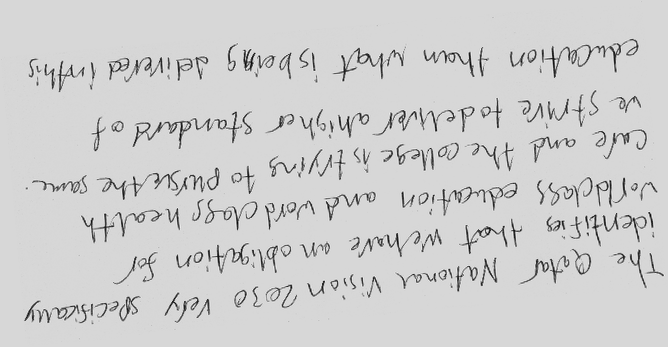 The Qatar National Vision 2030 very specifically
identifies that we have an obligation for
worldclass education and wordclass health
care and the college is trying to pursue the same.
we strive to deliver a higher standard of
education than what is being delivered in this